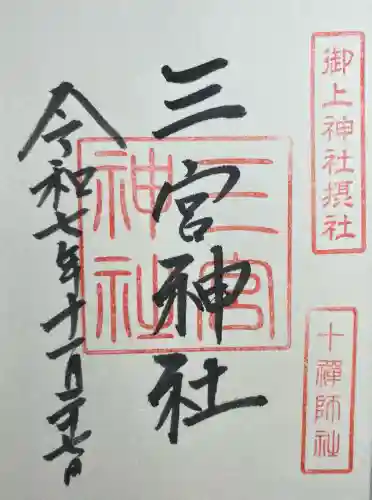 御上神社摂社
十禅師社
三宮神社
三宮神社
令和七年十一月二十七日